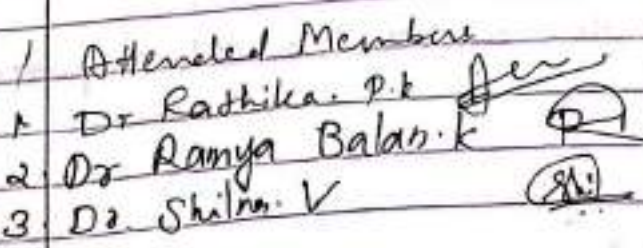 Attended Members
1. Dr Rathika. P.k
2. Dr Ramya Balan. k
3. Dr. Shilna. V